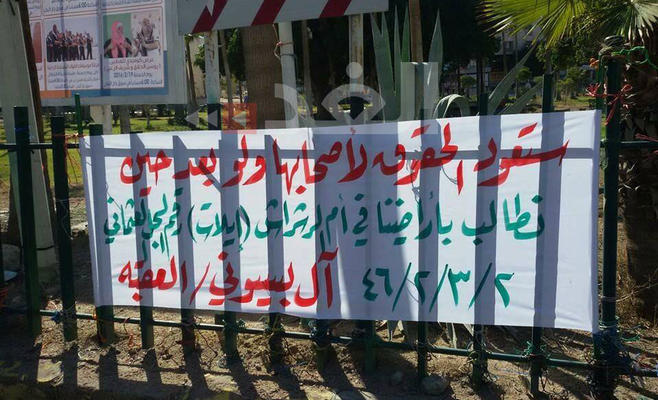 الغد
ستعود الحقوق لأصحابها ولو بعد حين
نطالب بأراضينا في أم الرشراش (إيلات) رقم السجل العثماني
٤٦/٢/٣/٢ آل بسيوني/العقبة